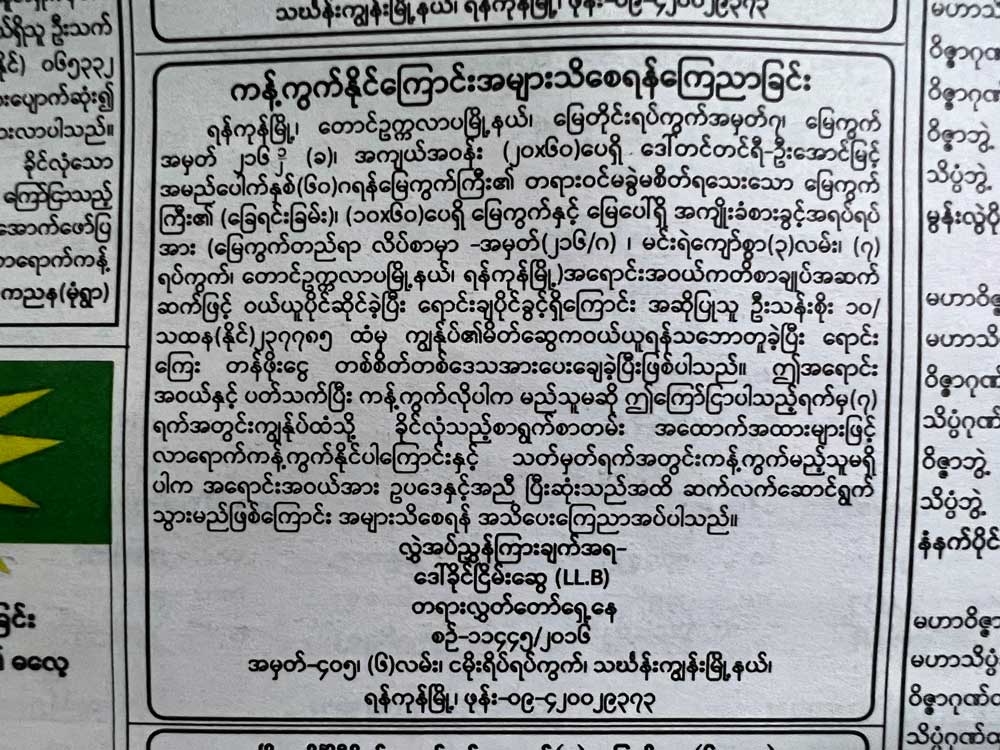 သင်္ဃန်းကျွန်းမြို့နယ်၊ ရန်ကုန်မြို့၊ ဖုန်း-၀၉-၄၂၀၀၂၉၃၇၃
ယ်ရှိသူ ဦးသက်
နိုင်) ၀၆၅၃၃၂
ားပျောက်ဆုံး၍
ားလာပါသည်။
နိုင်လုံသော
ကြော်ငြာသည့်
အောက်ဖော်ပြ
ာရောက်ကန့်
ကညန(မုံရွာ)
ခြင်း
ဓလေ့
ကန့်ကွက်နိုင်ကြောင်းအများသိစေရန်ကြေညာခြင်း
ရန်ကုန်မြို့၊ တောင်ဥက္ကလာပမြို့နယ်၊ မြေတိုင်းရပ်ကွက်အမှတ်၇၊ မြေကွက်
အမှတ် ၂၁၆ (ခ)၊ အကျယ်အဝန်း (၂၀x၆၀)ပေရှိ ဒေါ်တင်တင်ရီ-ဦးအောင်မြင့်
အမည်ပေါက်နှစ်(၆၀)ဂရန်မြေကွက်ကြီး၏ တရားဝင်မခွဲမစိတ်ရသေးသော မြေကွက်
ကြီး၏ (ခြေရင်းခြမ်း)၊ (၁၀x၆၀)ပေရှိ မြေကွက်နှင့် မြေပေါ်ရှိ အကျိုးခံစားခွင့်အရပ်ရပ်
အား (မြေကွက်တည်ရာ လိပ်စာမှာ -အမှတ်(၂၁၆/ဂ) ၊ မင်းရဲကျော်စွာ(၃)လမ်း၊ (၇)
ရပ်ကွက်၊ တောင်ဥက္ကလာပမြို့နယ်၊ ရန်ကုန်မြို့)အရောင်းအဝယ်ကတိစာချုပ်အဆက်
ဆက်ဖြင့် ဝယ်ယူပိုင်ဆိုင်ခဲ့ပြီး ရောင်းချပိုင်ခွင့်ရှိကြောင်း အဆိုပြုသူ ဦးသန်းစိုး ၁၀/
သထန(နိုင်)၂၃၇၇၈၅ ထံမှ ကျွန်ုပ်၏မိတ်ဆွေကဝယ်ယူရန်သဘောတူခဲ့ပြီး ရောင်း
ကြေး တန်ဖိုးငွေ တစ်စိတ်တစ်ဒေသအားပေးချေခဲ့ပြီးဖြစ်ပါသည်။ ဤအရောင်း
အဝယ်နှင့် ပတ်သက်ပြီး ကန့်ကွက်လိုပါက မည်သူမဆို ဤကြော်ငြာပါသည့်ရက်မှ(၇)
ရက်အတွင်းကျွန်ုပ်ထံသို့ ခိုင်လုံသည့်စာရွက်စာတမ်း အထောက်အထားများဖြင့်
လာရောက်ကန့်ကွက်နိုင်ပါကြောင်းနှင့် သတ်မှတ်ရက်အတွင်းကန့်ကွက်မည့်သူမရှိ
ပါက အရောင်းအဝယ်အား ဥပဒေနှင့်အညီ ပြီးဆုံးသည်အထိ ဆက်လက်ဆောင်ရွက်
သွားမည်ဖြစ်ကြောင်း အများသိစေရန် အသိပေးကြေညာအပ်ပါသည်။
လွှဲအပ်ညွှန်ကြားချက်အရ-
ဒေါ်ခိုင်ငြိမ်းဆွေ (LL.B)
တရားလွှတ်တော်ရှေ့နေ
စဉ်-၁၁၄၄၅/၂၀၁၆
အမှတ်-၄၀၅၊ (၆)လမ်း၊ ငမိုးရိပ်ရပ်ကွက်၊ သင်္ဃန်းကျွန်းမြို့နယ်၊
ရန်ကုန်မြို့၊ ဖုန်း-၀၉-၄၂၀၀၂၉၃၇၃
မဟာသိ
ဝိဇ္ဇာဂုဏ်
ဝိဇ္ဇာဂုဏ်
ဝိဇ္ဇာဘွဲ့
သိပ္ပံဘွဲ့
မွန်းလွဲပို
မဟာဝိဇ္ဇ
မဟာသိ
ဝိဇ္ဇာဂုဏ်
သိပ္ပံဂုဏ်
ဝိဇ္ဇာဘွဲ့
သိပ္ပံဘွဲ့
နံနက်ပိုင်
မဟာဝိဇ္ဇာ
မဟာသိပ္ပံ
ဝိဇ္ဇာဂုဏ်
သိပ္ပံဂုဏ်